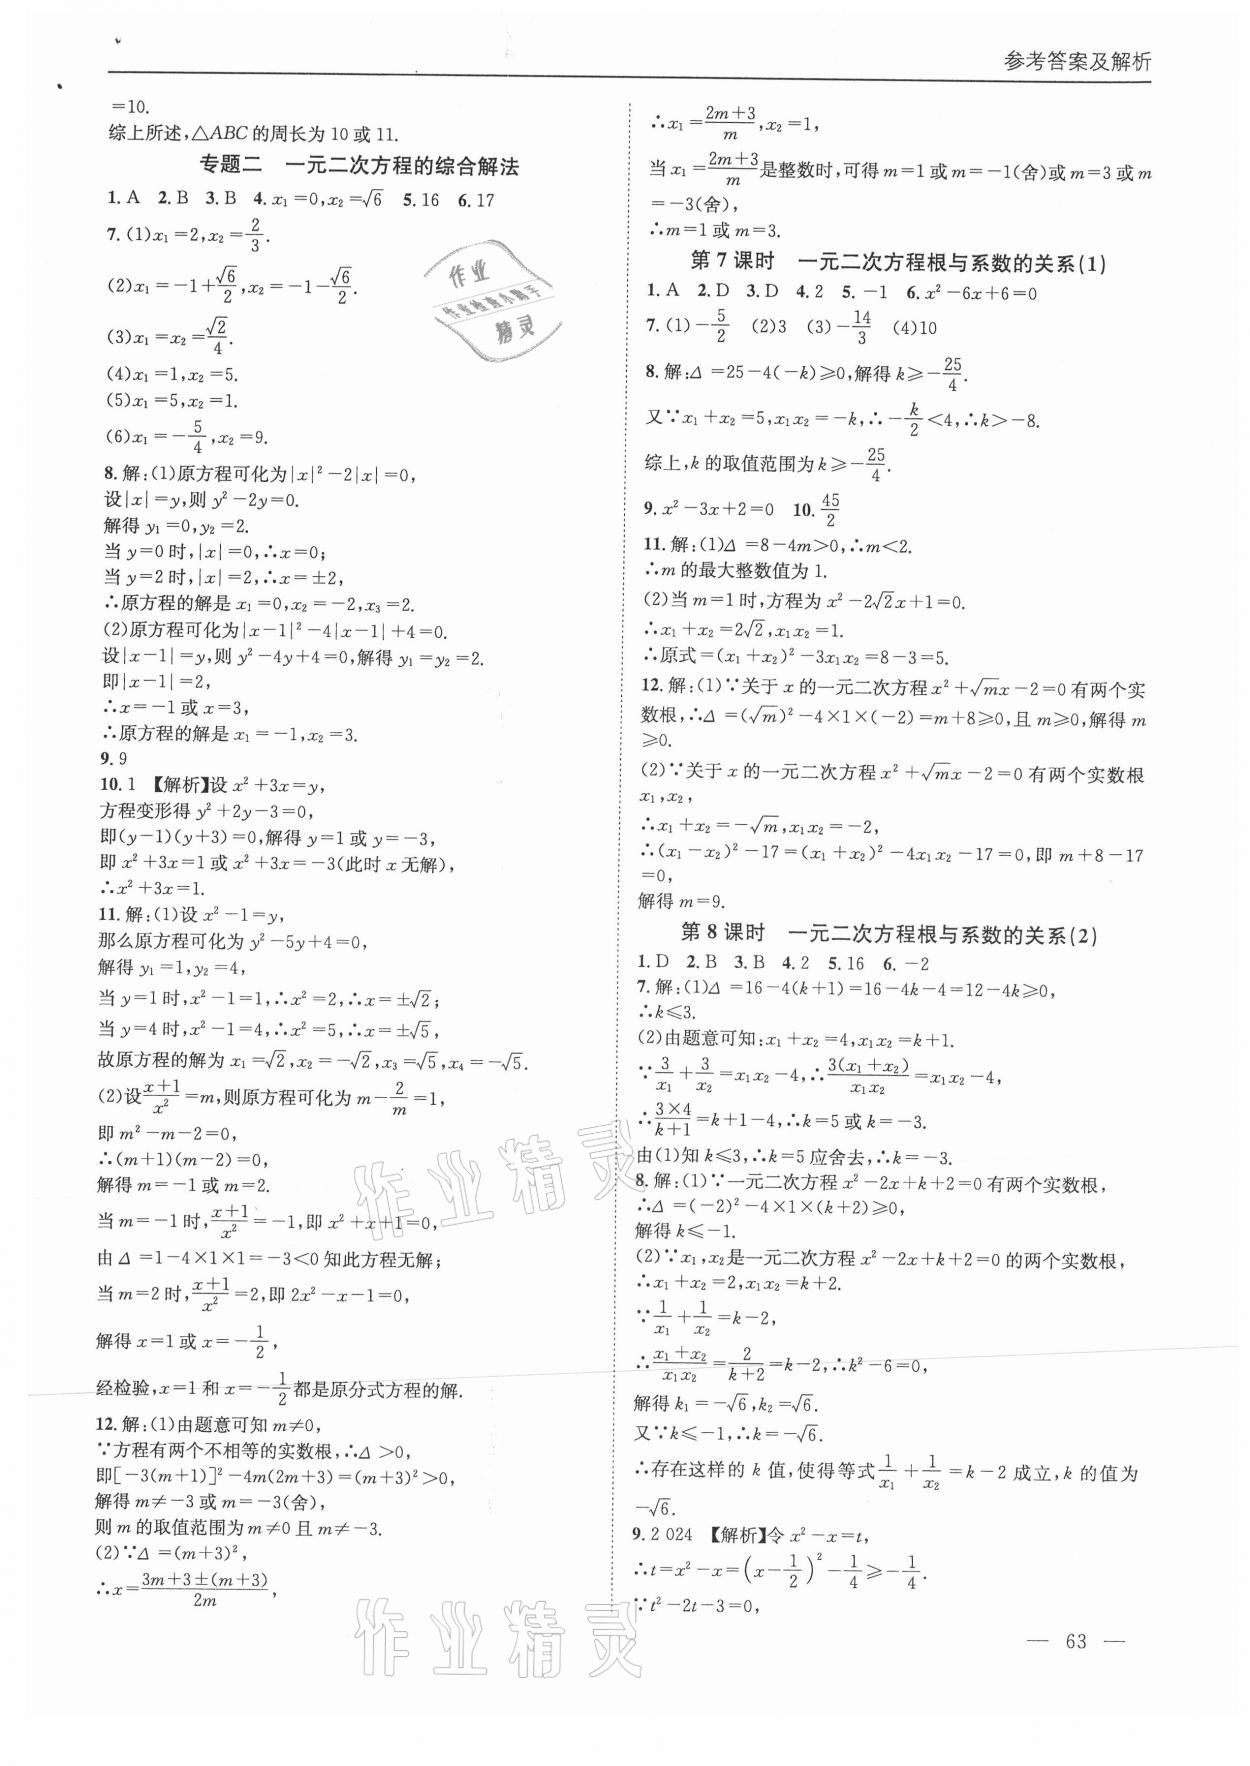 参考答案及解析
=10.
综上所述,△ABC 的周长为 10 或 11.
专题二 一元二次方程的综合解法
1. A 2. B 3. B 4. x₁=0,x₂=√6 5. 16 6. 17
7. (1)x₁=2,x₂=2/3.
(2)x₁=-1+√6/2,x₂=-1-√6/2.
(3)x₁=x₂=√2/4.
(4)x₁=1,x₂=5.
(5)x₁=5,x₂=1.
(6)x₁=-5/4,x₂=9.
8. 解:(1)原方程可化为|x|²-2|x|=0,
设|x|=y,则 y²-2y=0.
解得 y₁=0,y₂=2.
当 y=0 时,|x|=0,∴x=0;
当 y=2 时,|x|=2,∴x=±2,
∴原方程的解是 x₁=0,x₂=-2,x₃=2.
(2)原方程可化为|x-1|²-4|x-1|+4=0.
设|x-1|=y,则 y²-4y+4=0,解得 y₁=y₂=2.
即|x-1|=2,
∴x=-1 或 x=3,
∴原方程的解是 x₁=-1,x₂=3.
9. 9
10. 1 【解析】设 x²+3x=y,
方程变形得 y²+2y-3=0,
即(y-1)(y+3)=0,解得 y=1 或 y=-3,
即 x²+3x=1 或 x²+3x=-3(此时 x 无解),
∴x²+3x=1.
11. 解:(1)设 x²-1=y,
那么原方程可化为 y²-5y+4=0,
解得 y₁=1,y₂=4,
当 y=1 时,x²-1=1,∴x²=2,∴x=±√2;
当 y=4 时,x²-1=4,∴x²=5,∴x=±√5,
故原方程的解为 x₁=√2,x₂=-√2,x₃=√5,x₄=-√5.
(2)设(x+1)/x²=m,则原方程可化为 m-2/m=1,
即 m²-m-2=0,
∴(m+1)(m-2)=0,
解得 m=-1 或 m=2.
当 m=-1 时,(x+1)/x²=-1,即 x²+x+1=0,
由 Δ=1-4×1×1=-3<0 知此方程无解;
当 m=2 时,(x+1)/x²=2,即 2x²-x-1=0,
解得 x=1 或 x=-1/2,
经检验,x=1 和 x=-1/2都是原分式方程的解.
12. 解:(1)由题意可知 m≠0,
∵方程有两个不相等的实数根,∴Δ>0,
即[-3(m+1)]²-4m(2m+3)=(m+3)²>0,
解得 m≠-3 或 m=-3(舍),
则 m 的取值范围为 m≠0 且 m≠-3.
(2)∵Δ=(m+3)²,
∴x=(3m+3±(m+3))/2m,
∴x₁=(2m+3)/m,x₂=1,
当 x₁=(2m+3)/m是整数时,可得 m=1 或 m=-1(舍)或 m=3 或 m
=-3(舍),
∴m=1 或 m=3.
第 7 课时 一元二次方程根与系数的关系(1)
1. A 2. D 3. D 4. 2 5. -1 6. x²-6x+6=0
7. (1)-5/2 (2)3 (3)-14/3 (4)10
8. 解:Δ=25-4(-k)≥0,解得 k≥-25/4.
又∵x₁+x₂=5,x₁x₂=-k,∴-k/2<4,∴k>-8.
综上,k 的取值范围为 k≥-25/4.
9. x²-3x+2=0 10. 45/2
11. 解:(1)Δ=8-4m>0,∴m<2.
∴m 的最大整数值为 1.
(2)当 m=1 时,方程为 x²-2√2x+1=0.
∴x₁+x₂=2√2,x₁x₂=1.
∴原式=(x₁+x₂)²-3x₁x₂=8-3=5.
12. 解:(1)∵关于 x 的一元二次方程 x²+√mx-2=0 有两个实
数根,∴Δ=(√m)²-4×1×(-2)=m+8≥0,且 m≥0,解得 m
≥0.
(2)∵关于 x 的一元二次方程 x²+√mx-2=0 有两个实数根
x₁,x₂,
∴x₁+x₂=-√m,x₁x₂=-2,
∴(x₁-x₂)²-17=(x₁+x₂)²-4x₁x₂-17=0,即 m+8-17
=0,
解得 m=9.
第 8 课时 一元二次方程根与系数的关系(2)
1. D 2. B 3. B 4. 2 5. 16 6. -2
7. 解:(1)Δ=16-4(k+1)=16-4k-4=12-4k≥0,
∴k≤3.
(2)由题意可知:x₁+x₂=4,x₁x₂=k+1.
∵3/x₁+3/x₂=x₁x₂-4,∴3(x₁+x₂)/x₁x₂=x₁x₂-4,
∴(3×4)/(k+1)=k+1-4,∴k=5 或 k=-3.
由(1)知 k≤3,∴k=5 应舍去,∴k=-3.
8. 解:(1)∵一元二次方程 x²-2x+k+2=0 有两个实数根,
∴Δ=(-2)²-4×1×(k+2)≥0,
解得 k≤-1.
(2)∵x₁,x₂是一元二次方程 x²-2x+k+2=0 的两个实数根,
∴x₁+x₂=2,x₁x₂=k+2.
∵1/x₁+1/x₂=k-2,
∴(x₁+x₂)/x₁x₂=2/(k+2)=k-2,∴k²-6=0,
解得 k₁=-√6,k₂=√6.
又∵k≤-1,∴k=-√6.
∴存在这样的 k 值,使得等式1/x₁+1/x₂=k-2 成立,k 的值为
-√6.
9. 2 024 【解析】令 x²-x=t,
∴t=x²-x=(x-1/2)²-1/4≥-1/4.
∵t²-2t-3=0,
— 63 —
作业
作业检查小助手
精灵
作业精灵
作业精灵